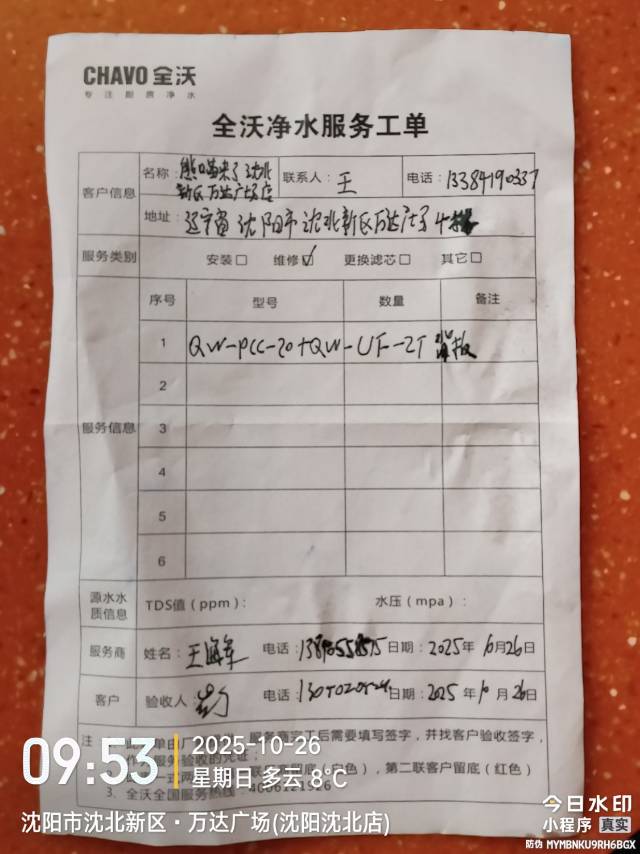 CHAVO 全沃
专注商质净水
全沃净水服务工单
客户信息
名称：熊喵来了沈北
新区万达广场店
联系人：王
电话：13384190337
地址：辽宁省沈阳市沈北新区万达广场4楼
服务类别
安装□ 维修☑ 更换滤芯□ 其它□
服务信息
序号 型号 数量 备注
1 QW-PCC-20+QW-UF-2T
2
3
4
5
6
源水水
质信息
TDS值（ppm）： 水压（mpa）：
服务商 姓名： 电话： 日期：2025年10月26日
客户 验收人： 电话： 日期：2025年10月26日
服务商完工后需要填写签字，并找客户验收签字，
，第二联客户留底（红色）
3、全沃全国服务热线
09:53
2025-10-26
星期日 多云 8℃
沈阳市沈北新区·万达广场(沈阳沈北店)
今日水印
小程序 真实
防伪 MYMBNKU9RH6BGX